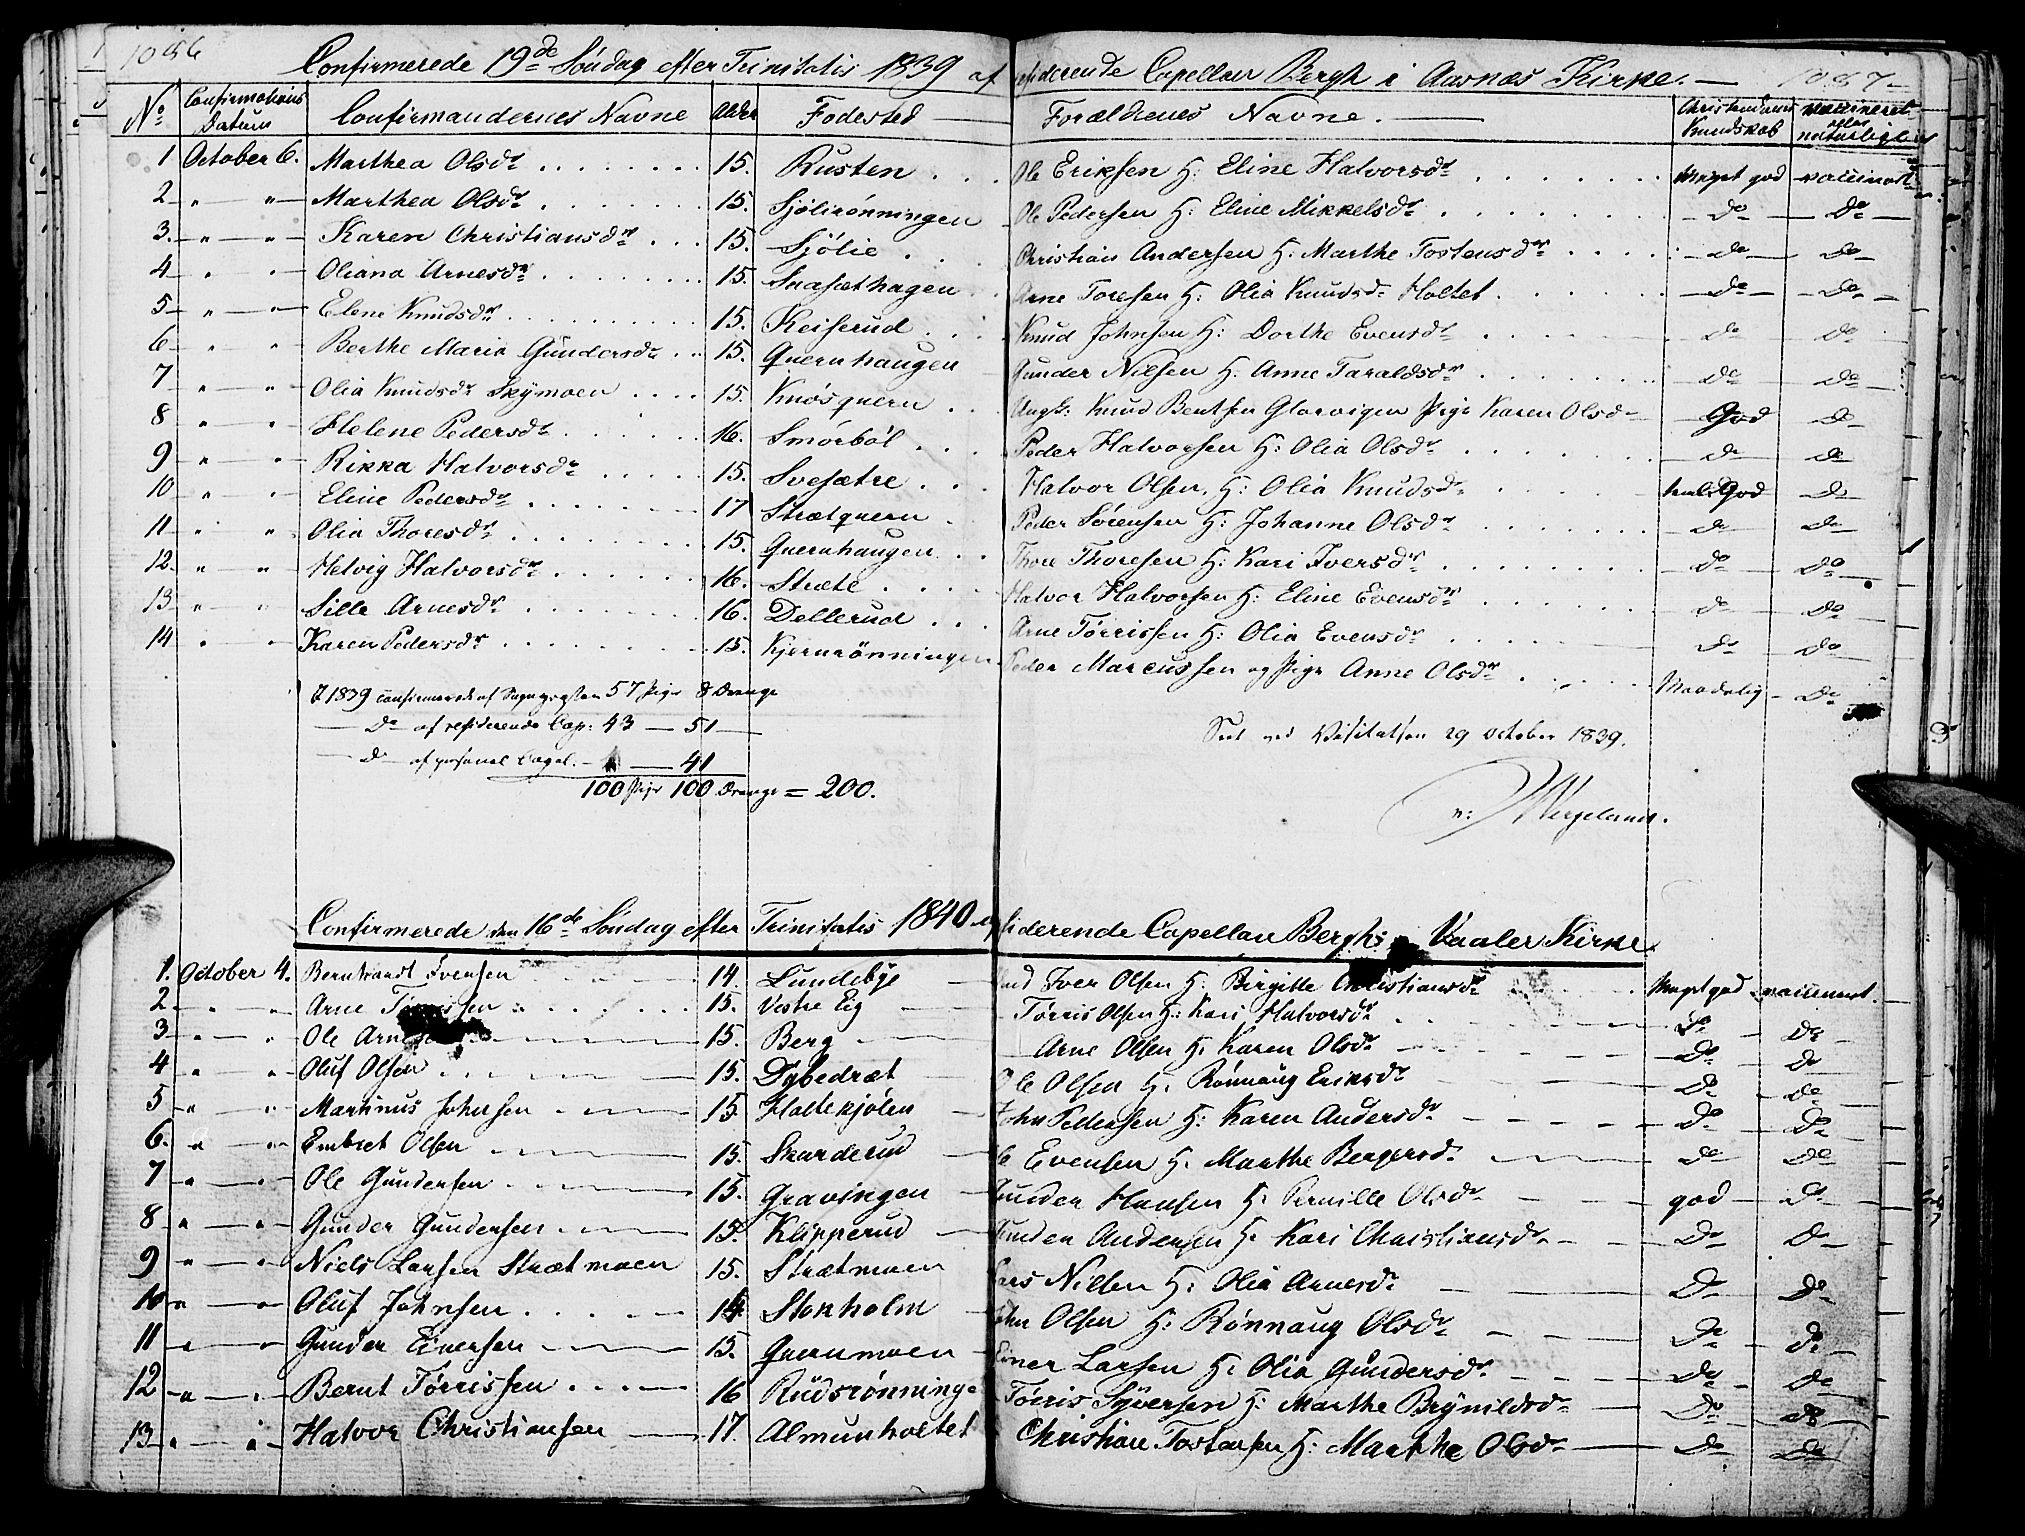 1086 Confirmerede 19de Söndag efter Trinitatis 1839 af residerende Capellan Bergh i Aasnæs Kirke. — 1087
No Confirmations Datum Confirmandernes Navne Alder Födested Forældrenes Navne. Christendoms Kundskab vaccineret eller naturlige
1 October 6. Marthea Olsdr 15. Rusten Ole Eriksen H: Eline Halvorsdr Meget god vaccineret
2 " " Marthea Olsdr 15. Sjölirönningen Ole Pedersen H: Eline Mikkelsdr Do Do
3. " " Karen Christiansdr 15. Sjölie Christian Andersen H: Marthe Tostensdr do Do
4 " " Oliana Arnesdr 15. Snasæthagen Arne Toresen H: Olia Knudsdr Holtet Do Do
5 " " Elene Knudsdr 15. Keiserud Knud Johnsen H: Dorthe Evensdr Do Do
6 " " Berthe Maria Gundersdr 15. Quernhaugen Gunder Nielsen H: Anne Taraldsdr Do Do
7 " " Olia Knudsdr Skÿmoen 15. Knösquern Ungk: Knud Bentsen Glorvigen Pige Karen Olsdr God Do
8 " " Helene Pedersdr 16. Smörböl Peder Halvorsen H: Olia Olsdr Do Do
9 " " Rikka Halvorsdr 15. Svesætre Halvor Olsen, H: Olia Knudsdr God Do
10 " " Eline Pedersdr 17 Strætquern Peder Sörensen H: Johanne Olsdr Do Do
11 " " Olia Thoresdr 15. Quernhaugen Thore Thoresen H: Kari Iversdr Do Do
12. " " Helvig Halvorsdr 16. Stræte Halvor Halvorsen H: Eline Evensdr Do Do
13 " " Sille Arnesdr 16. Dellerud Arne Törrissen H: Olia Evensdr Do Do
14 " " Karen Pedersdr 15. Kjernrönningen Peder Marcussen og Pige Anne Olsdr Maadelig Do
I 1839 confirmerede af Sognepresten 57 Piger 8 Drenge
— Do af residerende Cap: 43 — 51 —
— Do — af personel Capel. — — 41
100 Piger 100 Drenge = 200.
Seet ved Visitatsen 29 October 1839.
n: Wergeland.
Confirmerede den 16de Söndag efter Trinitatis 1840 residerende Capellan Bergh Vaaler Kirke
1. October 4. Berntrandt Iversen 14. Lundebÿe Iver Olsen H: Birgitte Christiansdr Meget god vaccineret.
2 " " Arne Törrissen 15. Vestre Eig Törris Olsen H: Kari Halvorsdr Do Do
3 " " Ole Arnesen 15. Berg Arne Olsen H. Karen Olsdr Do Do
4 " " Oluf Olsen 15. Dybedræt Ole Olsen H. Rönnaug Eriksdr Do Do
5 " " Martinus Johnsen 15 Holtekjölen John Pedersen H: Karen Andersdr Do Do
6. " " Embret Olsen 15. Skarderud Ole Evensen H. Marthe Bergersdr Do Do
7 " " Ole Gundersen 15. Gravingen Gunder Hansen H: Pernille Olsdr god Do
8 " " Gunder Gundersen 15. Klipperud Gunder Andersen H: Kari Christiansdr Do Do
9 " " Niels Larsen Strætmoen 15. Strætmoen Lars Nielsen H: Olia Arnesdr Do Do
10 " " Oluf Johnsen 14. Stokholm John Olsen H: Rönnaug Olsdr Do Do
11 " " Gunder Einersen 15. Quernmoen Einer Larsen H: Olia Gundersdr Do Do
12 " " Bernt Törrissen 16 Rudsrönninge Törris Syversen H: Marthe Brÿnildsdr Do Do
13 " " Halvor Christiansen 17. Almunholtet Christian Tostensen H: Marthe Olsdr Do Do